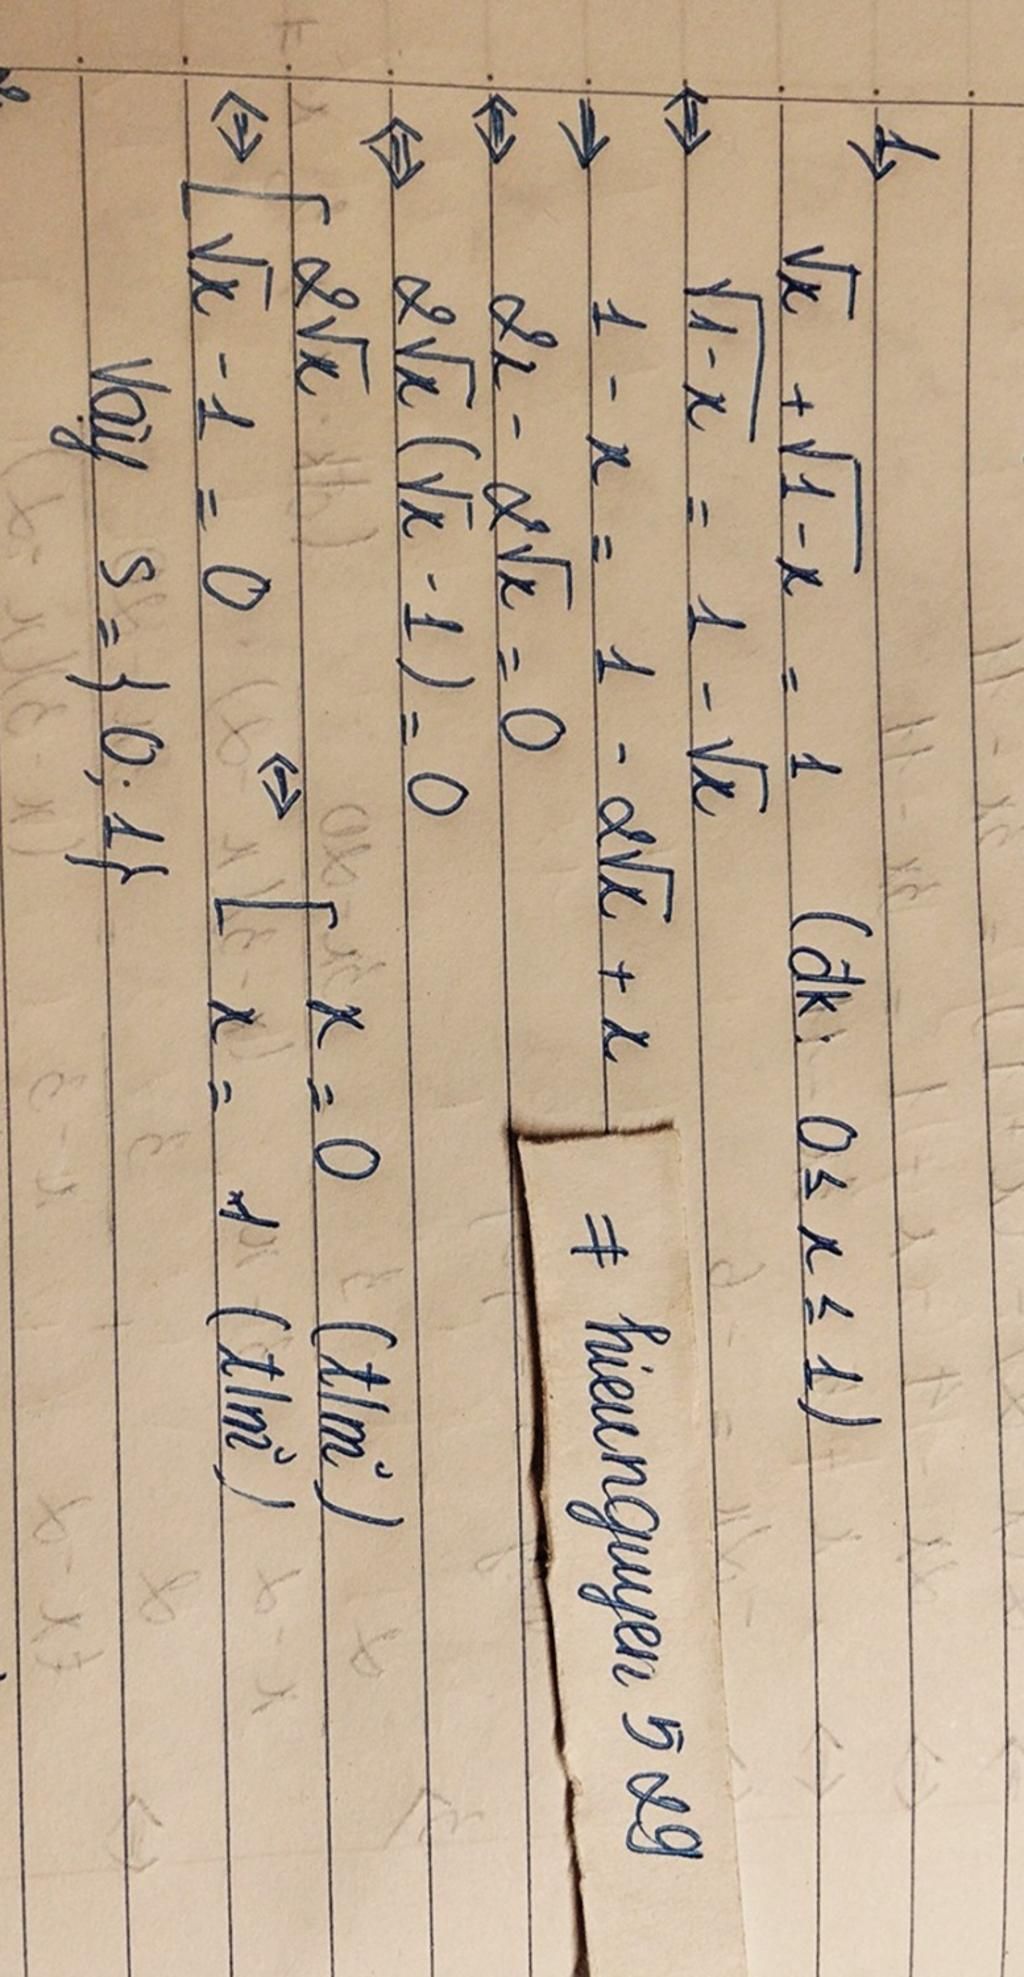 1,
√x + √1-x = 1 (đk: 0 ≤ x ≤ 1)
⇔ √1-x = 1 - √x
⇒ 1 - x = 1 - 2√x + x
⇔ 2x - 2√x = 0
⇔ 2√x (√x - 1) = 0
⇔ [ 2√x
√x - 1 = 0
⇔ [ x = 0 (t/m)
x = 1 (t/m)
Vậy S = { 0; 1 }
≠ hieunguyen 529